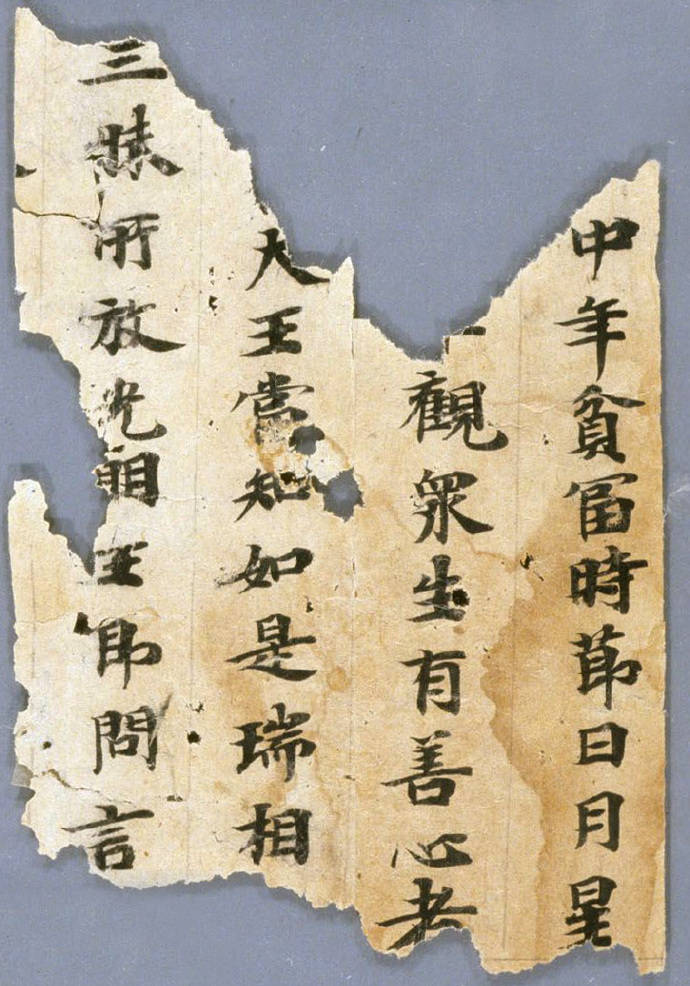 中年貧冨時莭日月星
觀衆生有善心者
大王當知如是瑞相
三昧所放光明王即問言